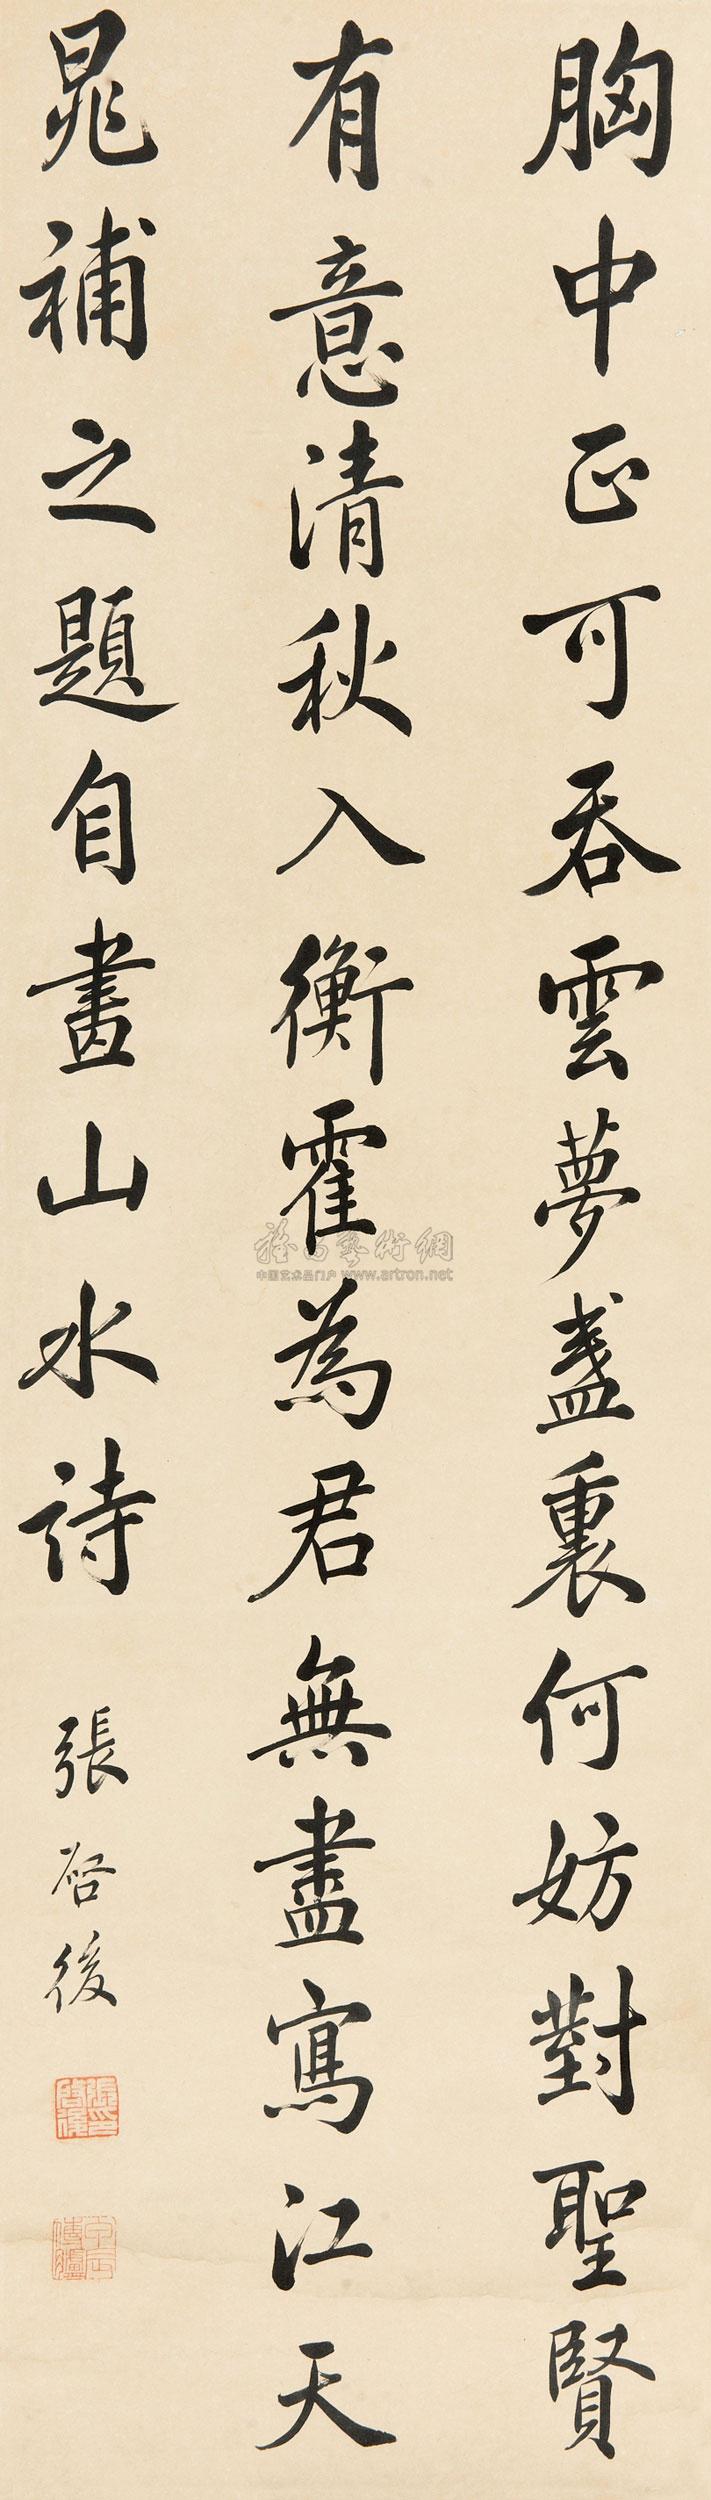 胸中正可吞雲夢盞裏何妨對聖賢
有意清秋入衡霍為君無盡寫江天
晁補之題自畫山水詩
張啓後
雅昌藝術網
中国艺术品门户 www.artron.net